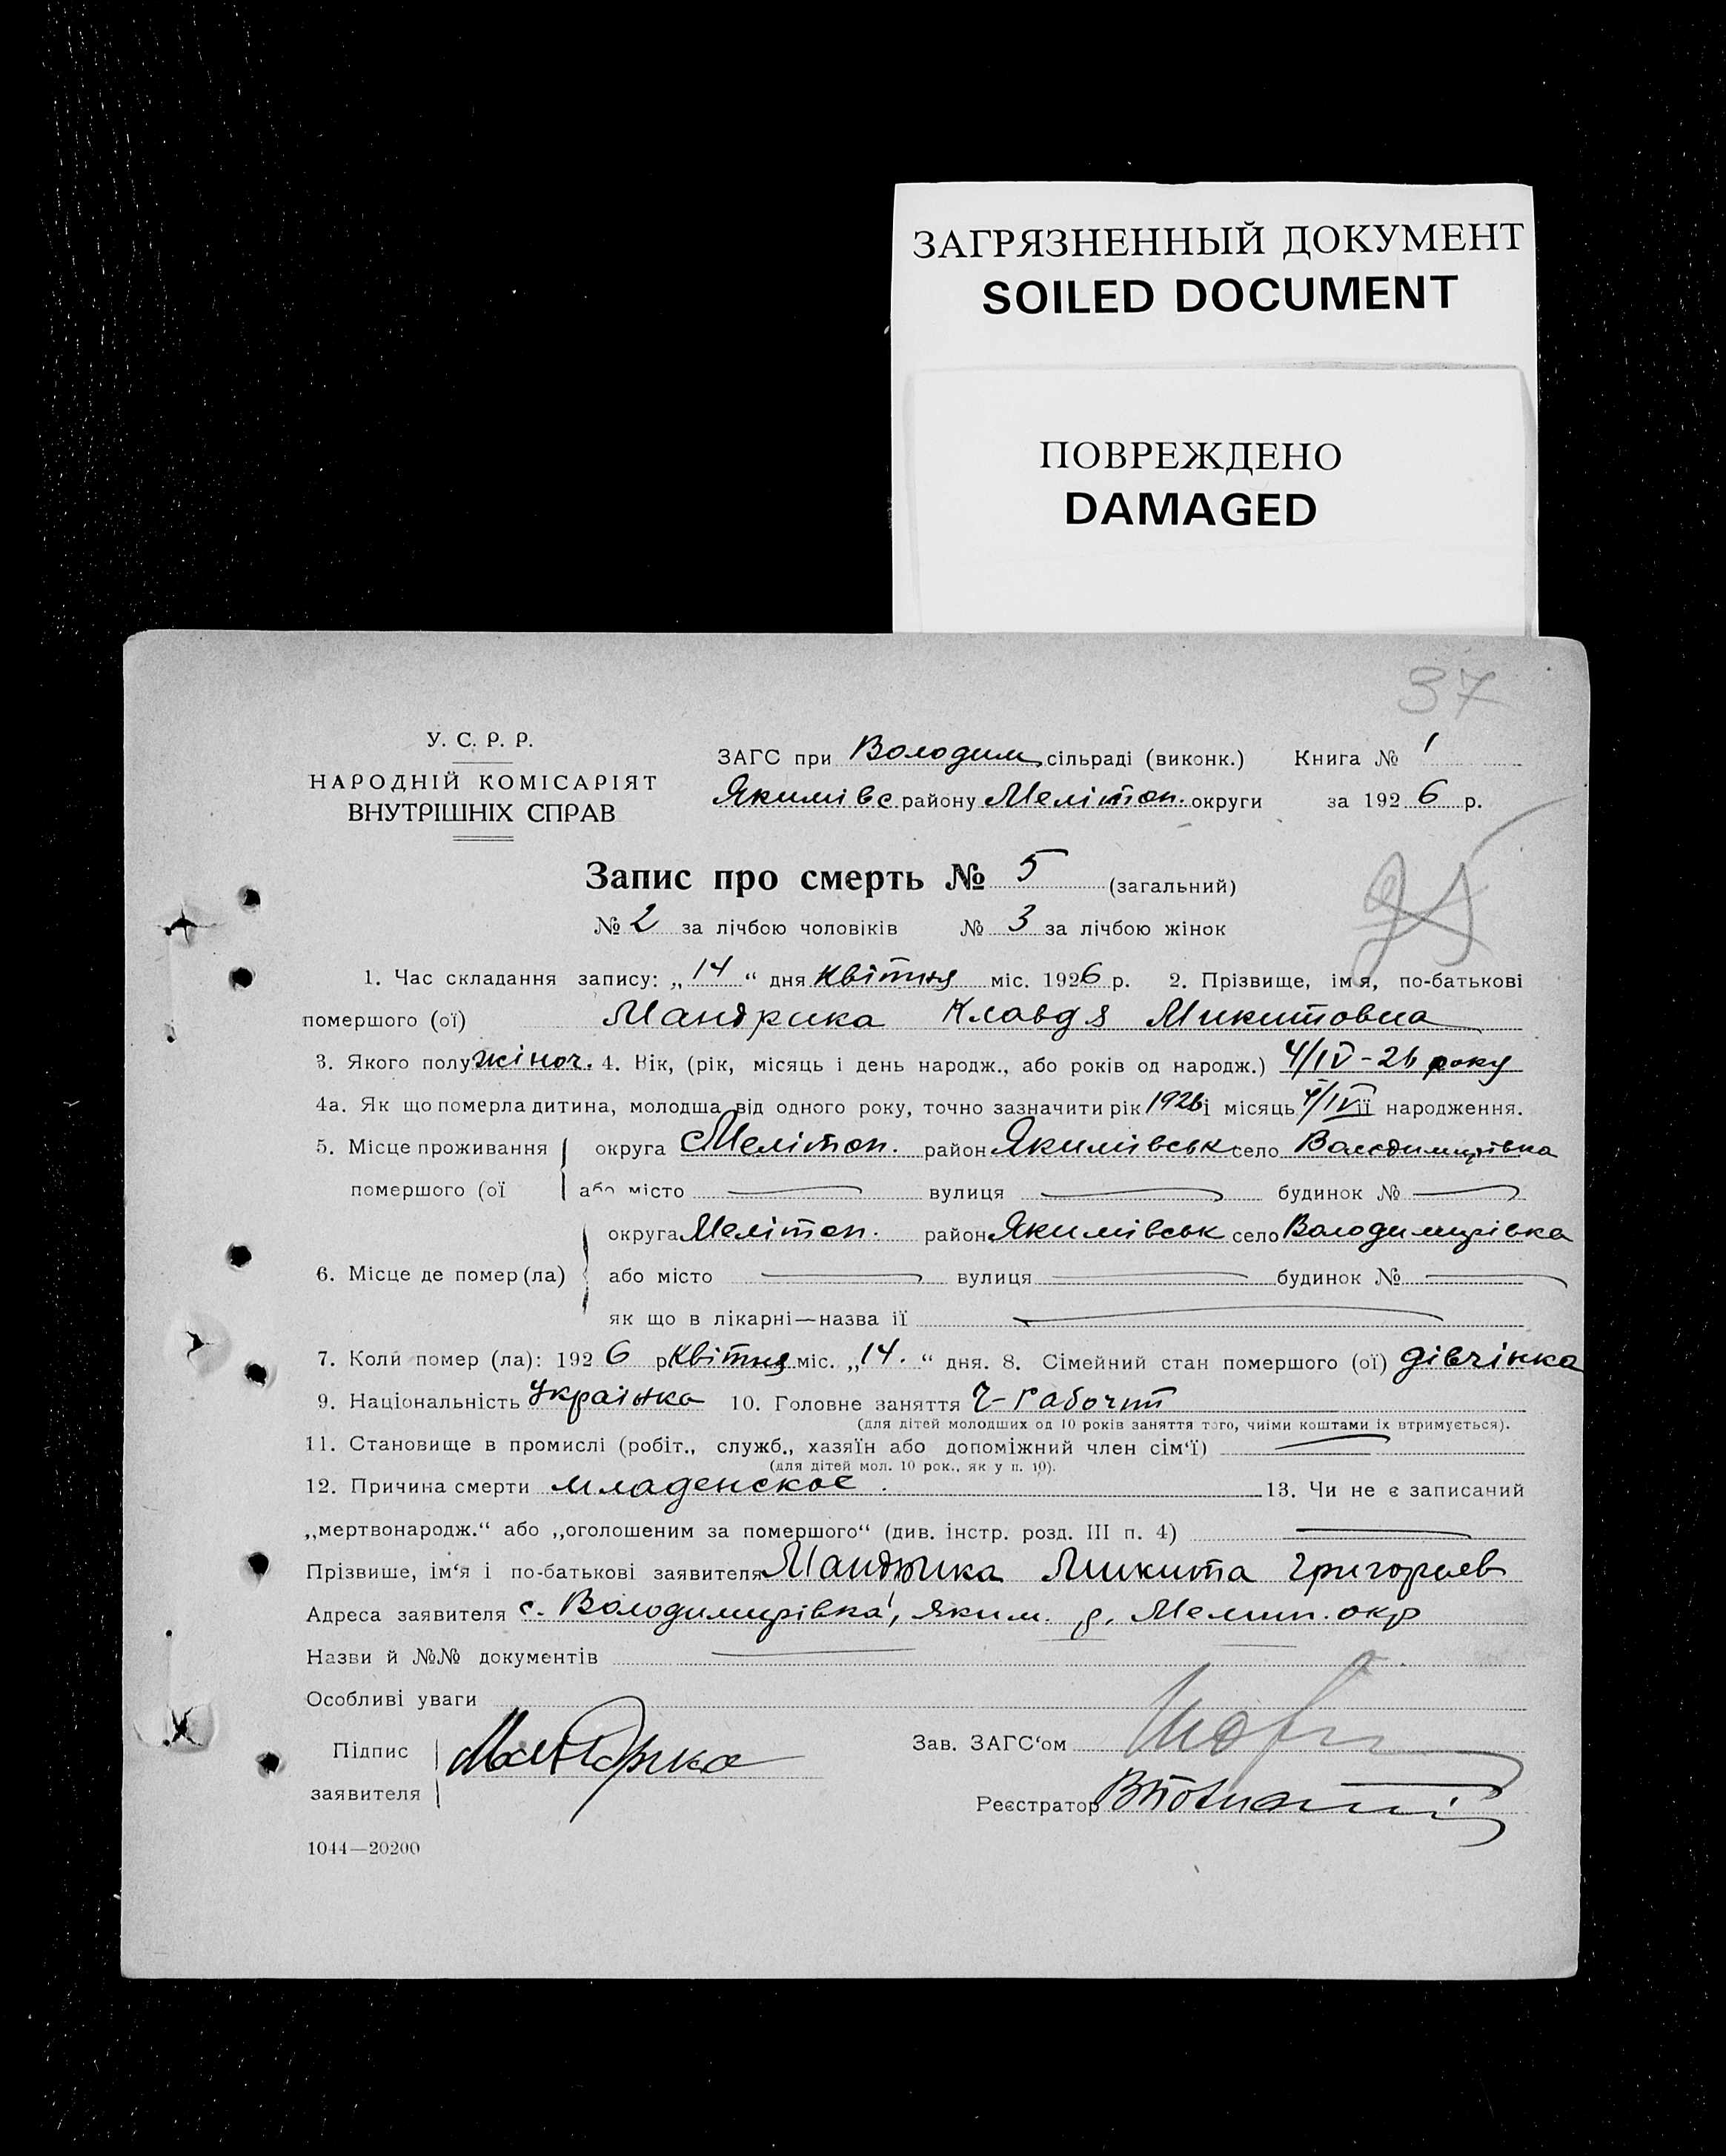 ЗАГРЯЗНЕННЫЙ ДОКУМЕНТ
SOILED DOCUMENT
ПОВРЕЖДЕНО
DAMAGED
37
У. С. Р. Р.
НАРОДНІЙ КОМІСАРІЯТ
ВНУТРІШНІХ СПРАВ
ЗАГС при Володим. сільраді (виконк.) Книга № 1
Якимівс. району Мелітоп. округи за 1926 р.
Запис про смерть № 5 (загальний)
№ 2 за лічбою чоловіків № 3 за лічбою жінок
1. Час складання запису: „14“ дня квітня міс. 1926 р. 2. Прізвище, імя, по-батькові
помершого (ої) Мандрика Клавдя Микитовна
3. Якого полу жіноч. 4. Вік, (рік, місяць і день народж., або років од народж.) 4/IV-26 року
4а. Як що померла дитина, молодша від одного року, точно зазначити рік 1926 і місяць 4/IV її народження.
5. Місце проживання округа Мелітоп. район Якимівськ село Володимирівка
помершого (ої або місто вулиця будинок №
округа Мелітоп. район Якимівськ село Володимирівка
6. Місце де помер (ла) або місто вулиця будинок №
як що в лікарні—назва її
7. Коли помер (ла): 1926 р квітня міс. „14.“ дня. 8. Сімейний стан помершого (ої) дівчінка
9. Національність Українка 10. Головне заняття
(для дітей молодших од 10 років заняття того, чиїми коштами їх втримується).
11. Становище в промислі (робіт., служб., хазяїн або допоміжний член сім‘ї)
(для дітей мол. 10 рок., як у п. 10).
12. Причина смерти младенское. 13. Чи не є записаний
„мертвонародж.“ або „оголошеним за помершого“ (див. інстр. розд. III п. 4)
Прізвище, ім‘я і по-батькові заявителя Мандрика Микита Григорьев
Адреса заявителя с. Володимирівка, Яким. р. Мелит. окр
Назви й №№ документів
Особливі уваги
Підпис Мандрика Зав. ЗАГС‘ом
заявителя
Реєстратор
1044—20200